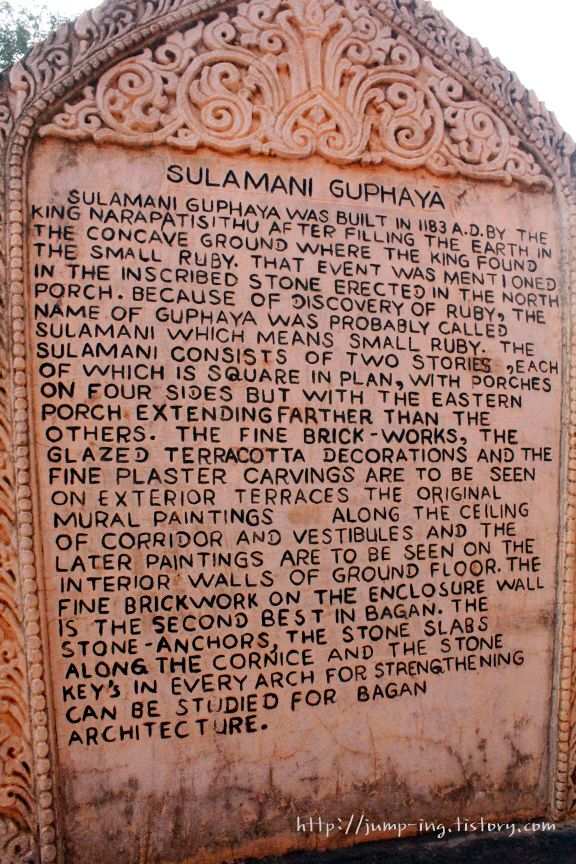 SULAMANI GUPHAYĀ
SULAMANI GUPHAYA WAS BUILT IN 1183 A.D. BY THE
KING NARAPATISITHU AFTER FILLING THE EARTH IN
THE CONCAVE GROUND WHERE THE KING FOUND
THE SMALL RUBY. THAT EVENT WAS MENTIONED
IN THE INSCRIBED STONE ERECTED IN THE NORTH
PORCH. BECAUSE OF DISCOVERY OF RUBY, THE
NAME OF GUPHAYA WAS PROBABLY CALLED
SULAMANI WHICH MEANS SMALL RUBY. THE
SULAMANI CONSISTS OF TWO STORIES, EACH
OF WHICH IS SQUARE IN PLAN, WITH PORCHES
ON FOUR SIDES BUT WITH THE EASTERN
PORCH EXTENDING FARTHER THAN THE
OTHERS. THE FINE BRICK-WORKS, THE
GLAZED TERRACOTTA DECORATIONS AND THE
FINE PLASTER CARVINGS ARE TO BE SEEN
ON EXTERIOR TERRACES THE ORIGINAL
MURAL PAINTINGS ALONG THE CEILING
OF CORRIDOR AND VESTIBULES AND THE
LATER PAINTINGS ARE TO BE SEEN ON THE
INTERIOR WALLS OF GROUND FLOOR. THE
FINE BRICKWORK ON THE ENCLOSURE WALL
IS THE SECOND BEST IN BAGAN. THE
STONE-ANCHORS, THE STONE SLABS
ALONG THE CORNICE AND THE STONE
KEY'S IN EVERY ARCH FOR STRENGTHENING
CAN BE STUDIED FOR BAGAN
ARCHITECTURE.
http://jump-ing.tistory.com